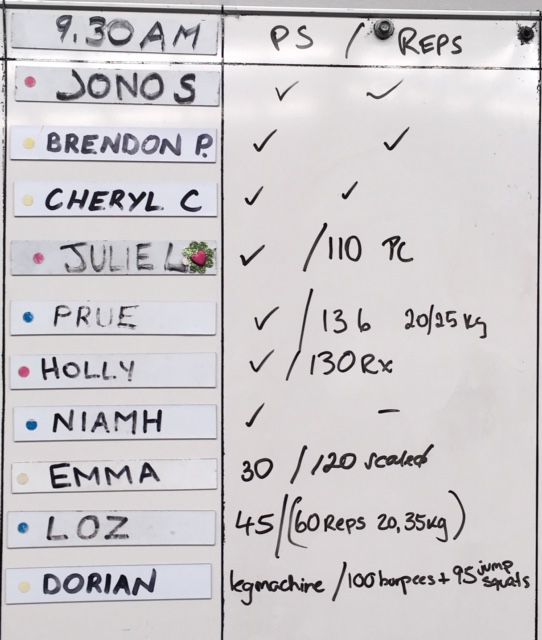 9.30AM PS / REPS
JONO S ✓ ✓
BRENDON P. ✓ ✓
CHERYL C ✓ ✓
JULIE L ✓ /110 PC
PRUE ✓ / 136 20/25 kg
HOLLY ✓ / 130 Rx
NIAMH ✓ –
EMMA 30 / 120 scaled
LOZ 45/(60 Reps 20,35kg)
DORIAN legmachine /100 burpees + 95 jump squats